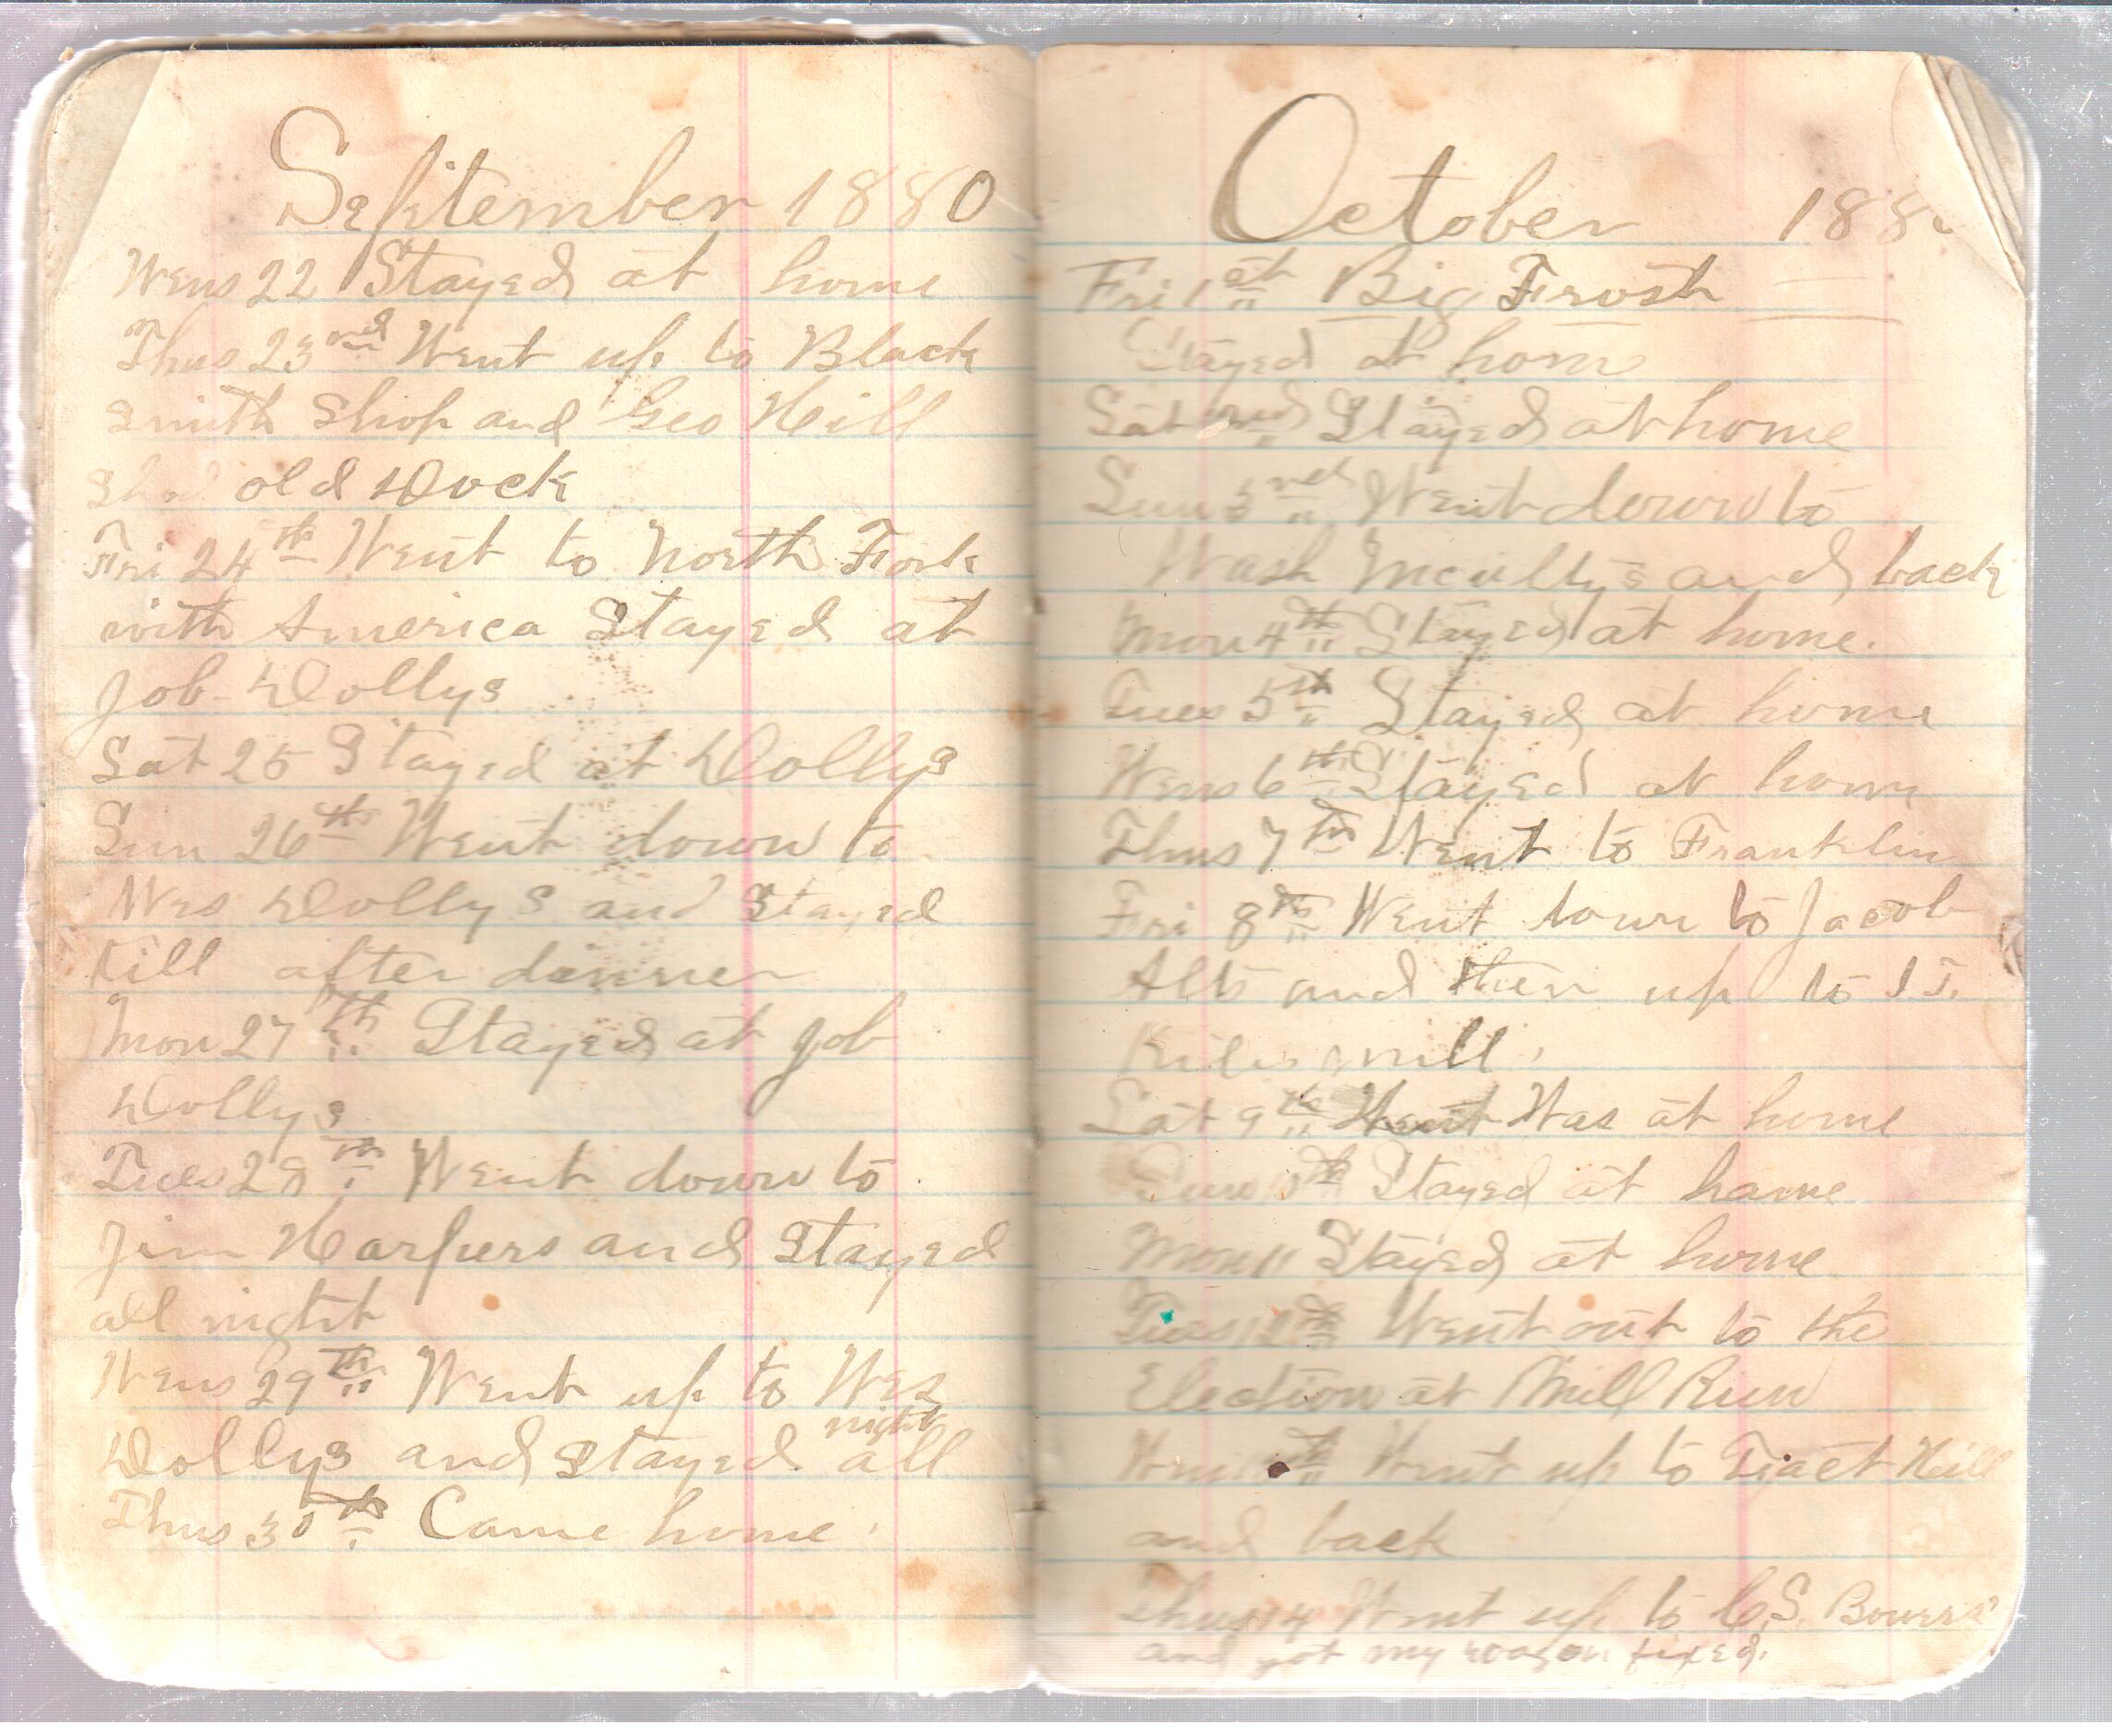 September 1880
Wens 22 Stayed at home
Thus 23rd Went up to Black
smith Shop and Geo Hill
Shod old Dock
Fri 24th Went to North Fork
with America Stayed at
Job Dollys
Sat 25 Stayed at Dollys
Sun 26th Went down to
Wes Dollys and Stayed
till after dinner
Mon 27th Stayed at Job
Dollys
Tues 28th Went down to
Jim Harpers and Stayed
all night
Wens 29th Went up to Wes
night
Dollys and stayed all
Thus 30th Came home.
October 188
Fri 1st Big Frost
Stayed at hom
Sat Stayed at home
Sun 3rd Went down to
Wash and back
Mon 4th Stayed at home.
Tues 5th Stayed at home
Wens 6th Stayed at home
Thus 7th Went to Franklin
Fri 8th Went down to Jacob
Alts and then up to
mill.
Sat 9th Went Was at home
Sun 10th Stayed at home
Mon 11 Stayed at home
Tues 12th Went out to the
Election at Mill Run
Went up to Hill
and back
Thus 14 Went up to C.S.
and got my wagon fixed.